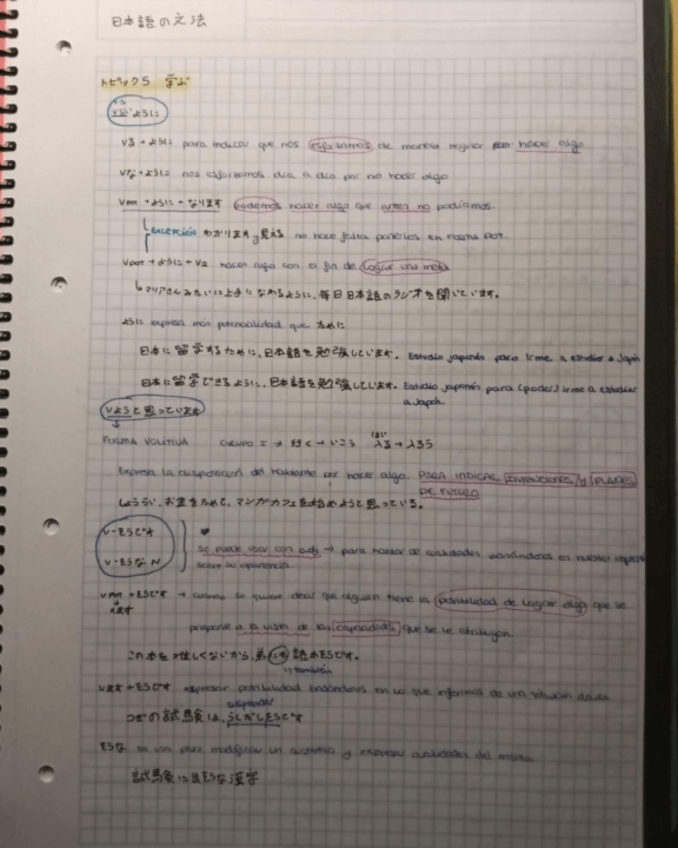 日本語の文法
トピック5 学ぶ
ように
Vる + ように para indicar que nos esforzamos de manera regular por hacer algo
Vな + ように nos esforzamos día a día por no hacer algo
Vpot + ように + なります podemos hacer algo que antes no podíamos.
excepción わかります y 見える no hace falta ponerlos en forma pot.
Vpot + ように + V2 hacer algo con el fin de lograr una meta
マリアさんみたいに上手になれるように、毎日日本語のラジオを聞いています。
ように expresa más potencialidad que ために
日本に留学するために、日本語を勉強しています。 Estudio japonés para irme a estudiar a Japón
日本に留学できるように、日本語を勉強しています。 Estudio japonés para (poder) irme a estudiar
a Japón.
Vようと思っています
FORMA VOLITIVA GRUPO I → 行く → いこう はい 入る → 入ろう
Expresa la disposición del hablante por hacer algo. PARA INDICAR INTENCIONES Y PLANES
DE FUTURO
しょうらい、お金をためて、マンガカフェを始めようと思っている。
V-そうです
V-そうな N
se puede usar con adj → para hablar de cualidades basándonos en nuestra
sobre su apariencia.
Vpot + そうです → cuando se quiere decir que alguien tiene la posibilidad de lograr algo que se
ます
propone a la vista de las capacidades que se le atribuyen.
この本は難しくないから、弟にも読めそうです。
también
Vます + そうです expresar posibilidad basándonos en lo que inferimos de una situación dada
suspender
つぎの試験は、
そうな se usa para modificar un sustantivo y expresar cualidades del mismo
試験に出そうな漢字